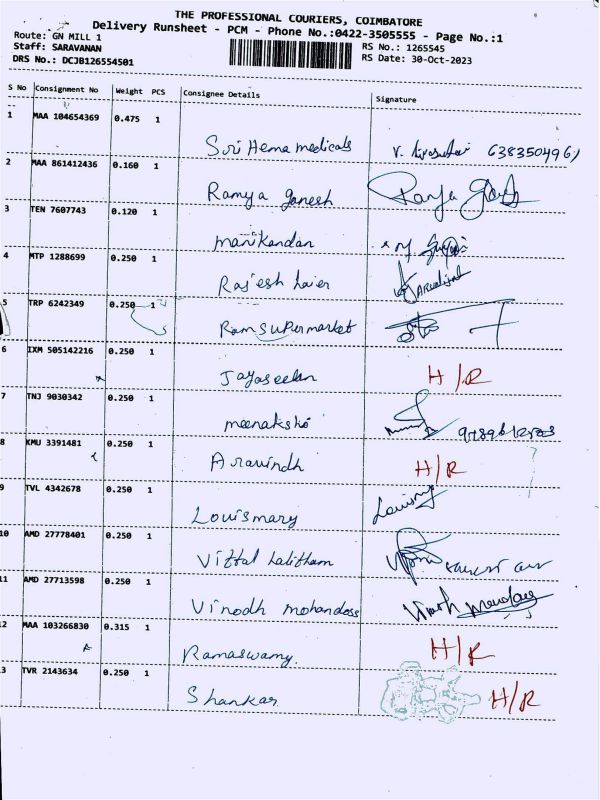 THE PROFESSIONAL COURIERS, COIMBATORE
Delivery Runsheet - PCM - Phone No.:0422-3505555 - Page No.:1
Route: GN MILL 1 RS No.: 1265545
Staff: SARAVANAN RS Date: 30-Oct-2023
DRS No.: DCJB126554501
S No Consignment No Weight PCS Consignee Details Signature
1 MAA 104654369 0.475 1
Sri Hema medicals
2 MAA 861412436 0.160 1
Ramya ganesh
3 TEN 7607743 0.120 1
manikandan
4 MTP 1288699 0.250 1
Rajesh haier
5 TRP 6242349 0.250 1
Ram Supermarket
6 IXM 505142216 0.250 1
Jayaseelan H/R
7 TNJ 9030342 0.250 1
meenakshi
8 KMU 3391481 0.250 1
Aravindh H/R
9 TVL 4342678 0.250 1
Louismary
10 AMD 27778401 0.250 1
Vittal Lalitham
11 AMD 27713598 0.250 1
Vinodh mohandoss
12 MAA 103266830 0.315 1
Ramaswamy H/R
13 TVR 2143634 0.250 1
Shankar H/R